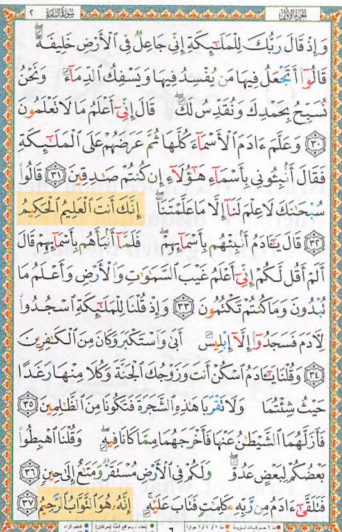 الجزء الأول سورة البقرة ٢
وَإِذْ قَالَ رَبُّكَ لِلْمَلَـٰٓئِكَةِ إِنِّى جَاعِلٌ فِى ٱلْأَرْضِ خَلِيفَةً ۖ
قَالُوٓا۟ أَتَجْعَلُ فِيهَا مَن يُفْسِدُ فِيهَا وَيَسْفِكُ ٱلدِّمَآءَ وَنَحْنُ
نُسَبِّحُ بِحَمْدِكَ وَنُقَدِّسُ لَكَ ۖ قَالَ إِنِّىٓ أَعْلَمُ مَا لَا تَعْلَمُونَ
٣٠ وَعَلَّمَ ءَادَمَ ٱلْأَسْمَآءَ كُلَّهَا ثُمَّ عَرَضَهُمْ عَلَى ٱلْمَلَـٰٓئِكَةِ
فَقَالَ أَنۢبِـُٔونِى بِأَسْمَآءِ هَـٰٓؤُلَآءِ إِن كُنتُمْ صَـٰدِقِينَ ٣١ قَالُوا۟
سُبْحَـٰنَكَ لَا عِلْمَ لَنَآ إِلَّا مَا عَلَّمْتَنَآ ۖ إِنَّكَ أَنتَ ٱلْعَلِيمُ ٱلْحَكِيمُ
٣٢ قَالَ يَـٰٓـَٔادَمُ أَنۢبِئْهُم بِأَسْمَآئِهِمْ ۖ فَلَمَّآ أَنۢبَأَهُم بِأَسْمَآئِهِمْ قَالَ
أَلَمْ أَقُل لَّكُمْ إِنِّىٓ أَعْلَمُ غَيْبَ ٱلسَّمَـٰوَٰتِ وَٱلْأَرْضِ وَأَعْلَمُ مَا
تُبْدُونَ وَمَا كُنتُمْ تَكْتُمُونَ ٣٣ وَإِذْ قُلْنَا لِلْمَلَـٰٓئِكَةِ ٱسْجُدُوا۟
لِـَٔادَمَ فَسَجَدُوٓا۟ إِلَّآ إِبْلِيسَ أَبَىٰ وَٱسْتَكْبَرَ وَكَانَ مِنَ ٱلْكَـٰفِرِينَ
٣٤ وَقُلْنَا يَـٰٓـَٔادَمُ ٱسْكُنْ أَنتَ وَزَوْجُكَ ٱلْجَنَّةَ وَكُلَا مِنْهَا رَغَدًا
حَيْثُ شِئْتُمَا وَلَا تَقْرَبَا هَـٰذِهِ ٱلشَّجَرَةَ فَتَكُونَا مِنَ ٱلظَّـٰلِمِينَ ٣٥
فَأَزَلَّهُمَا ٱلشَّيْطَـٰنُ عَنْهَا فَأَخْرَجَهُمَا مِمَّا كَانَا فِيهِ ۖ وَقُلْنَا ٱهْبِطُوا۟
بَعْضُكُمْ لِبَعْضٍ عَدُوٌّ ۖ وَلَكُمْ فِى ٱلْأَرْضِ مُسْتَقَرٌّ وَمَتَـٰعٌ إِلَىٰ حِينٍ ٣٦
فَتَلَقَّىٰٓ ءَادَمُ مِن رَّبِّهِۦ كَلِمَـٰتٍ فَتَابَ عَلَيْهِ ۚ إِنَّهُۥ هُوَ ٱلتَّوَّابُ ٱلرَّحِيمُ ٣٧
٦